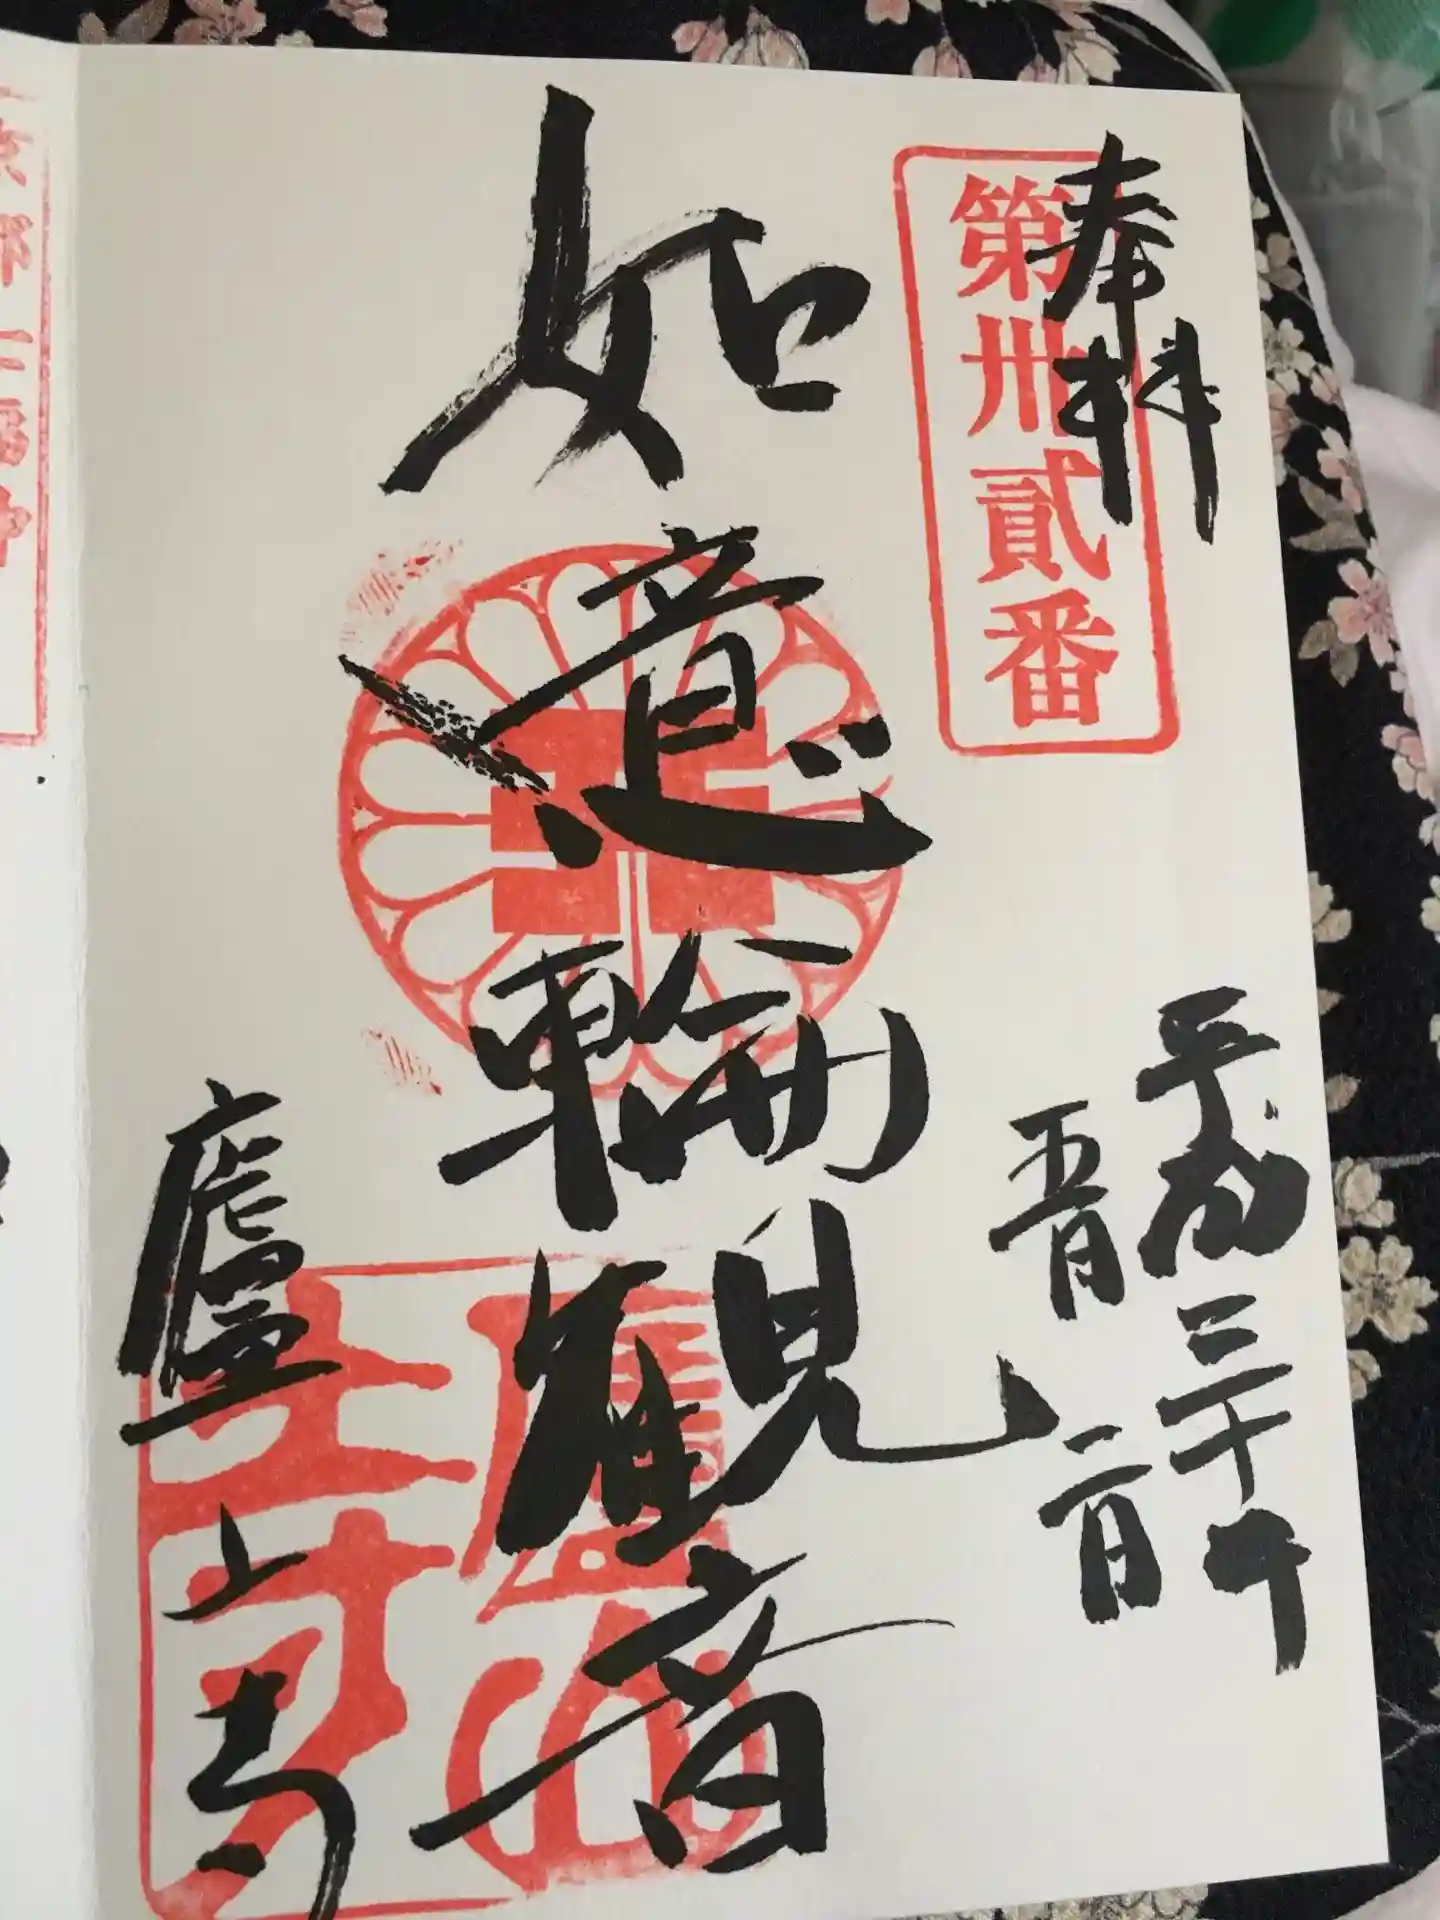 奉拝
第卅貳番
平成三十年
五月二日
如意輪観音
廬山寺
廬山
寺印